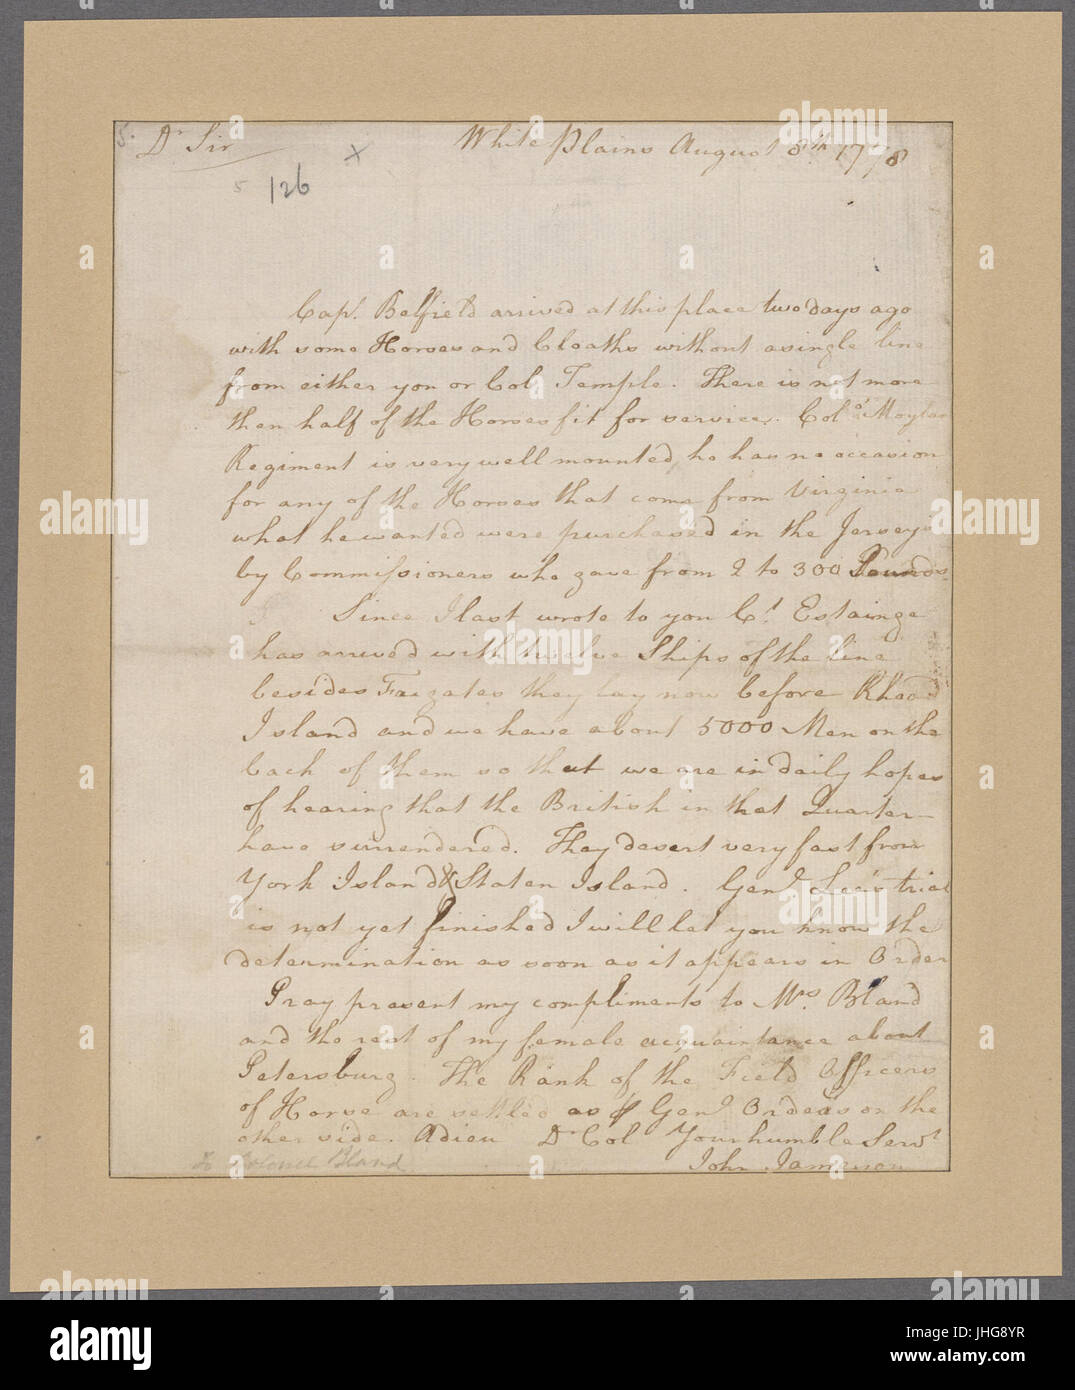 5. Dr Sir White Plains August 8th 1778
x
5 126
Capt. Belfield arrived at this place two days ago
with some Horses and Cloaths without a single line
from either you or Col. Temple. There is not more
then half of the Horses fit for service. Colo. Moylan
Regiment is very well mounted, he has no occasion
for any of the Horses that come from Virginia
what he wanted were purchased in the Jerseys
by Commissioners who gave from 2 to 300 Pounds.
Since I last wrote to you Ct. Estainge
has arrived with twelve Ships of the line
besides Faigates they lay now before Rhoad
Island and we have about 5000 Men on the
back of them so that we are in daily hopes
of hearing that the British in that Quarter
have surrendered. They desert very fast from
York Island & Staten Island. Genl. Lee's trial
is not yet finished I will let you know the
determination as soon as it appears in Order
Pray present my compliments to Mrs. Bland
and the rest of my female acquaintance about
Petersburg. The Rank of the Field Officers
of Horse are settled as Genl. Orders on the
other side. Adieu Dr Col Your humble Servt
To Colonel Bland John Jameson
alamy
alamy stock photo
JHG8YR
www.alamy.com